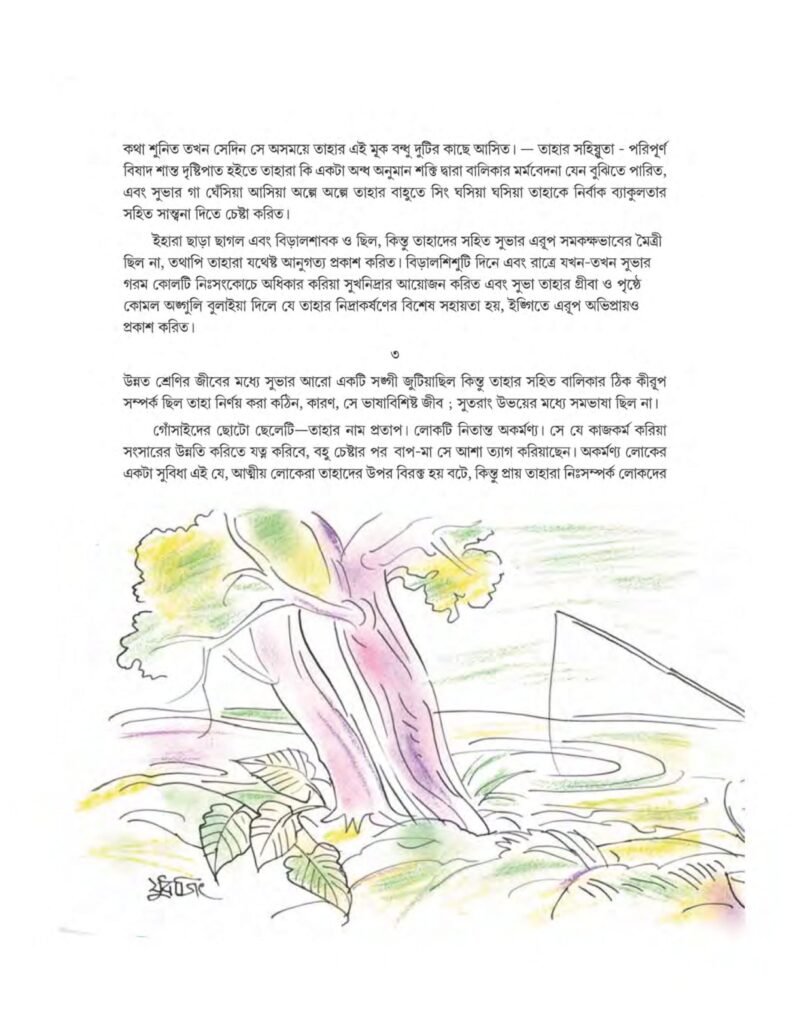 কথা শুনিত তখন সেদিন সে অসময়ে তাহার এই মূক বন্ধু দুটির কাছে আসিত। — তাহার সহিষ্ণুতা - পরিপূর্ণ
বিষাদ শান্ত দৃষ্টিপাত হইতে তাহারা কি একটা অন্ধ অনুমান শক্তি দ্বারা বালিকার মর্মবেদনা যেন বুঝিতে পারিত,
এবং সুভার গা ঘেঁসিয়া আসিয়া অল্পে অল্পে তাহার বাহুতে সিং ঘসিয়া ঘসিয়া তাহাকে নির্বাক ব্যাকুলতার
সহিত সান্ত্বনা দিতে চেষ্টা করিত।
ইহারা ছাড়া ছাগল এবং বিড়ালশাবক ও ছিল, কিন্তু তাহাদের সহিত সুভার এরূপ সমকক্ষভাবের মৈত্রী
ছিল না, তথাপি তাহারা যথেষ্ট আনুগত্য প্রকাশ করিত। বিড়ালশিশুটি দিনে এবং রাত্রে যখন-তখন সুভার
গরম কোলটি নিঃসংকোচে অধিকার করিয়া সুখনিদ্রার আয়োজন করিত এবং সুভা তাহার গ্রীবা ও পৃষ্ঠে
কোমল অঙ্গুলি বুলাইয়া দিলে যে তাহার নিদ্রাকর্ষণের বিশেষ সহায়তা হয়, ইঙ্গিতে এরূপ অভিপ্রায়ও
প্রকাশ করিত।
৩
উন্নত শ্রেণির জীবের মধ্যে সুভার আরো একটি সঙ্গী জুটিয়াছিল কিন্তু তাহার সহিত বালিকার ঠিক কীরূপ
সম্পর্ক ছিল তাহা নির্ণয় করা কঠিন, কারণ, সে ভাষাবিশিষ্ট জীব ; সুতরাং উভয়ের মধ্যে সমভাষা ছিল না।
গোঁসাইদের ছোটো ছেলেটি—তাহার নাম প্রতাপ। লোকটি নিতান্ত অকর্মণ্য। সে যে কাজকর্ম করিয়া
সংসারের উন্নতি করিতে যত্ন করিবে, বহু চেষ্টার পর বাপ-মা সে আশা ত্যাগ করিয়াছেন। অকর্মণ্য লোকের
একটা সুবিধা এই যে, আত্মীয় লোকেরা তাহাদের উপর বিরক্ত হয় বটে, কিন্তু প্রায় তাহারা নিঃসম্পর্ক লোকদের